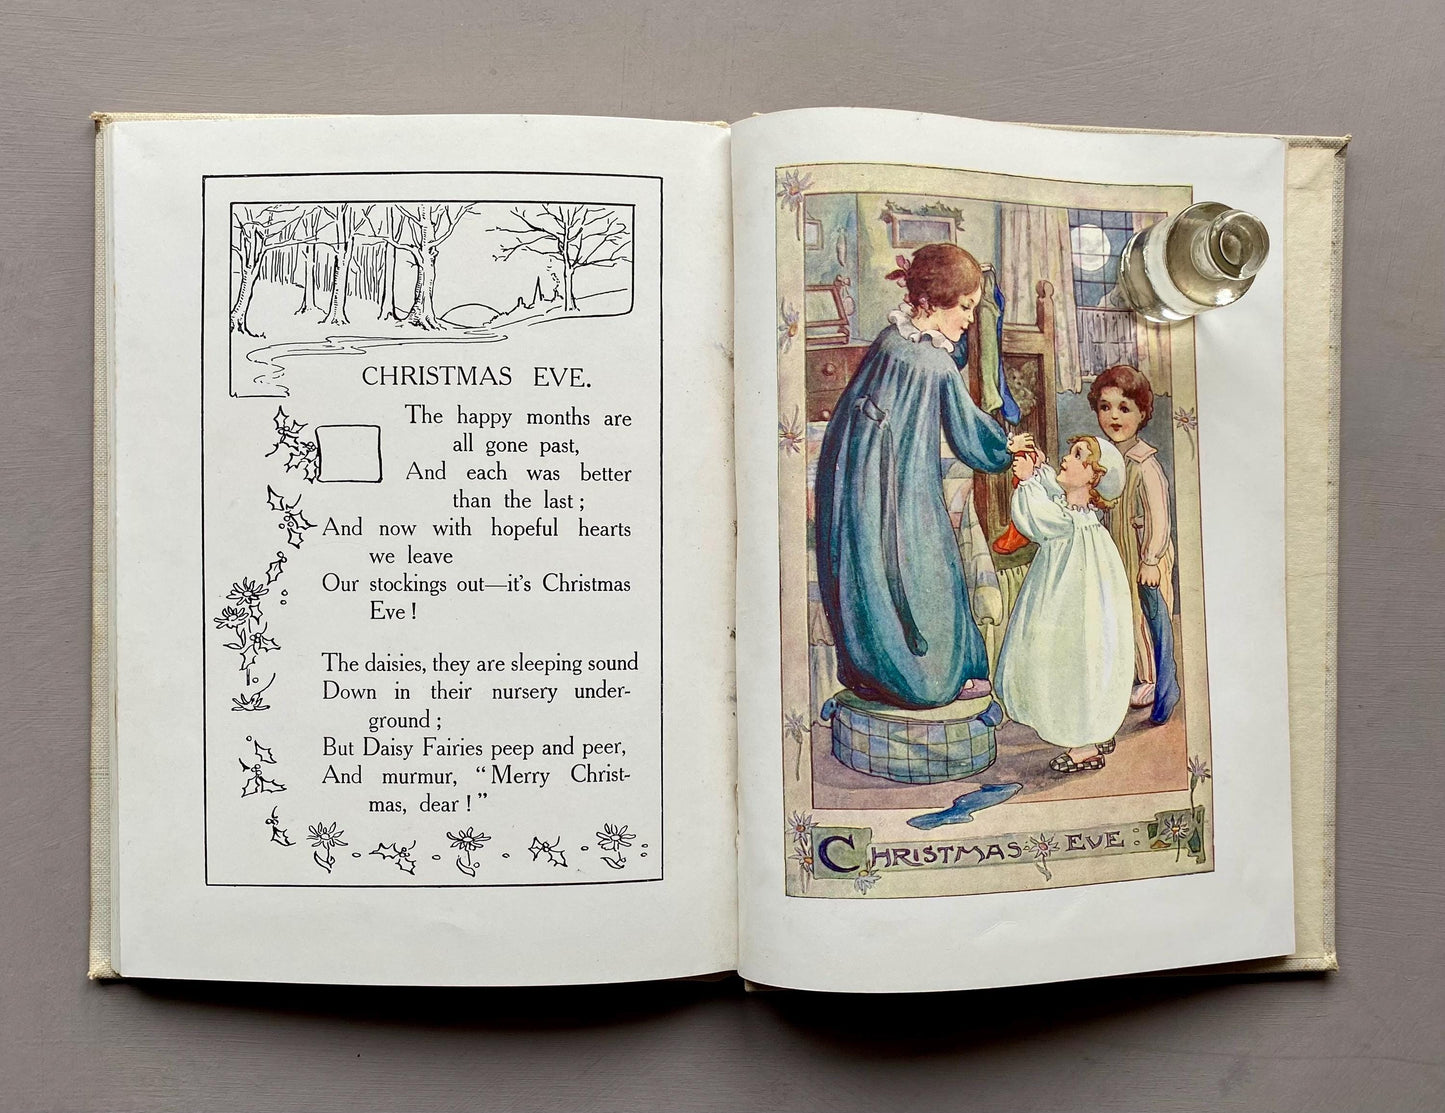 CHRISTMAS EVE.
The happy months are
all gone past,
And each was better
than the last ;
And now with hopeful hearts
we leave
Our stockings out—it's Christmas
Eve !
The daisies, they are sleeping sound
Down in their nursery under-
ground ;
But Daisy Fairies peep and peer,
And murmur, “Merry Christ-
mas, dear ! ”
CHRISTMAS EVE :